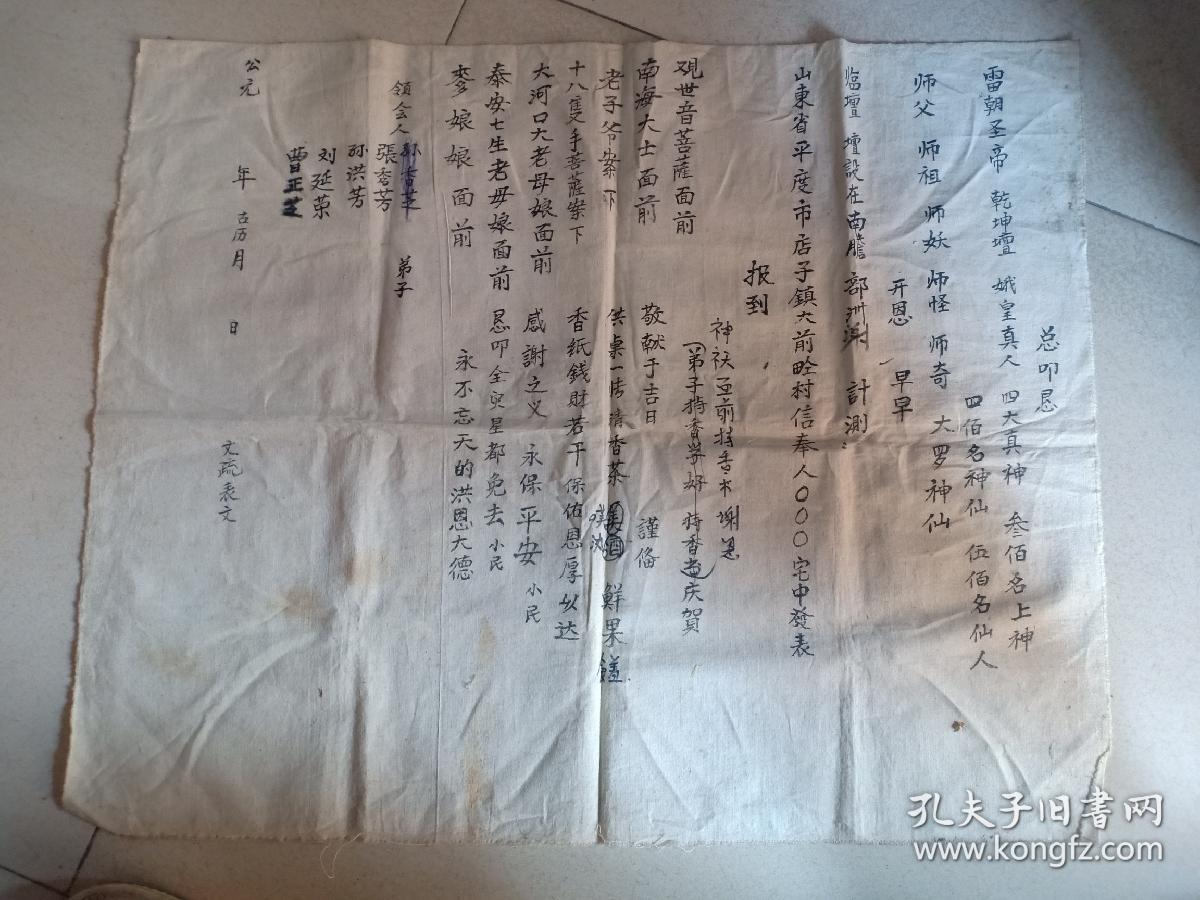 总叩恳
雷朝圣帝 乾坤壇 娥皇真人 四大真神 叁佰名上神
四佰名神仙 伍佰名仙人
师父 师祖 师妖 师怪 师奇 大罗神仙
开恩 早早
临壇 壇設在南膽部洲 計測
山東省平度市店子鎮大前疃村信奉人〇〇〇宅中發表
报到
神袄至前持香木謝恩
弟子持香学好持香 庆賀
观世音菩薩面前
敬献于吉日 謹俻
南海大士面前
供桌一 清香茶 美酒 鮮果
老子爷案下
香紙錢財若干保佑恩厚以达
十八隻手菩薩案下
感謝之义 永保平安 小民
大河口大老母娘面前
恳叩全 星都免去 小民
泰安七生老母娘面前
永不忘天的洪恩大德
娘娘面前
領会人 弟子
張秀芳
孙洪芳
刘延荣
曹正芝
公元 年 古历月 日
文疏表文
孔夫子旧书网
www.kongfz.com